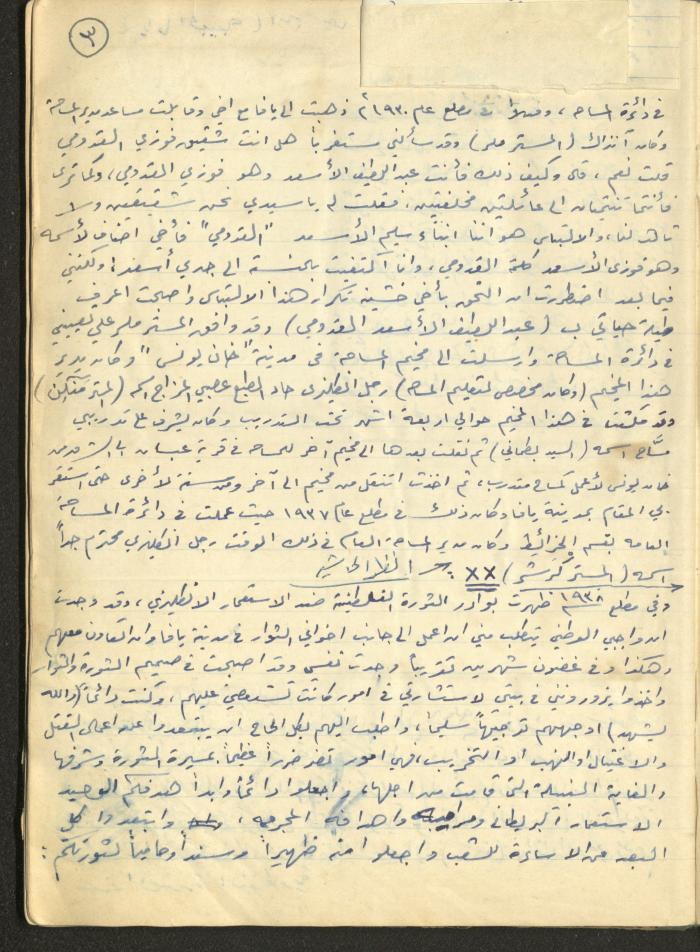 ٣
في دائرة المساحه، وفعلاً في مطلع عام ١٩٣٠ ذهبت الى يافا مع اخي وقابلت مساعد مدير المساحة
وكان آنذاك (المستر ملر) وقد سألني مستغرباً هل انت شقيق فوزي القدومي
قلت نعم، قال وكيف ذلك فأنت عبد اللطيف الأسعد وهو فوزي القدومي، وكما ترى
فأنتما تنتميان الى عائلتين مختلفتين، فقلت له يا سيدي نحن شقيقين ولا
لنا، والالتباس هو اننا ابناء سليم الأسعد "القدومي" فأخي اضاف لأسمه
وهو فوزي الأسعد كلمة القدومي، وانا اكتفيت بالنسبة الى جدي أسعد، ولكنني
فيما بعد اضطررت ان التحق بأخي خشية تكرار هذا الالتباس واصبحت اعرف
طيلة حياتي ب (عبد اللطيف الأسعد القدومي) وقد وافق المستر ملر على تعييني
في دائرة المساحة وارسلت الى مخيم المساحة في مدينة "خان يونس" وكان مدير
هذا المخيم (وكان مخصص لتعليم المساحه) رجل انكليزي حاد الطبع عصبي المزاج اسمه (المستر)
وقد مكثت في هذا المخيم حوالي اربعة اشهر تحت التدريب وكان يشرف على تدريبي
مسّاح اسمه (السيد) ثم نقلت بعدها الى مخيم آخر للمساحه في قرية عبسان بالقرب من
خان يونس لأعمل كمساح متدرب، ثم اخذت اتنقل من مخيم الى آخر ومن سنة لأخرى حتى استقر
بي المقام بمدينة يافا وكان ذلك في مطلع عام ١٩٣٧ حيث عملت في دائرة المساحة
العامه بقسم الخرائط وكان مدير المساحة العام في ذلك الوقت رجل انكليزي محترم جداً
اسمه (المستر) ×× انظر الحاشيه
وفي مطلع ١٩٣٨ ظهرت بوادر الثورة الفلسطينية ضد الاستعمار الانكليزي، وقد وجدت
ان واجبي الوطني يتطلب مني ان اعمل الى جانب اخواني الثوار في مدينة يافا وان اتعاون معهم
وهكذا وفي غضون شهرين تقريباً وجدت نفسي وقد اصبحت في صميم الثورة والثوار
واخذوا يزورونني في بيتي لاستشارتي في امور كانت تستعصي عليهم، وكنت دائماً (والله
يشهد) اوجههم توجيهاً سليماً، واطلب اليهم بكل الحاح ان يبتعدوا عن اعمال القتل
والاغتيال او النهب او التخريب، فهي امور تضر ضرراً عظيماً بمسيرة الثورة وشرفها
والغاية النبيلة التي قامت من اجلها، واجعلوا دائماً وابداً هدفكم الوحيد
الاستعمار البريطاني واهدافه المجرمه، وابتعدوا كل
البعد عن الاساءة للشعب واجعلوا منه ظهيراً وسنداً وحامياً لثورتكم: